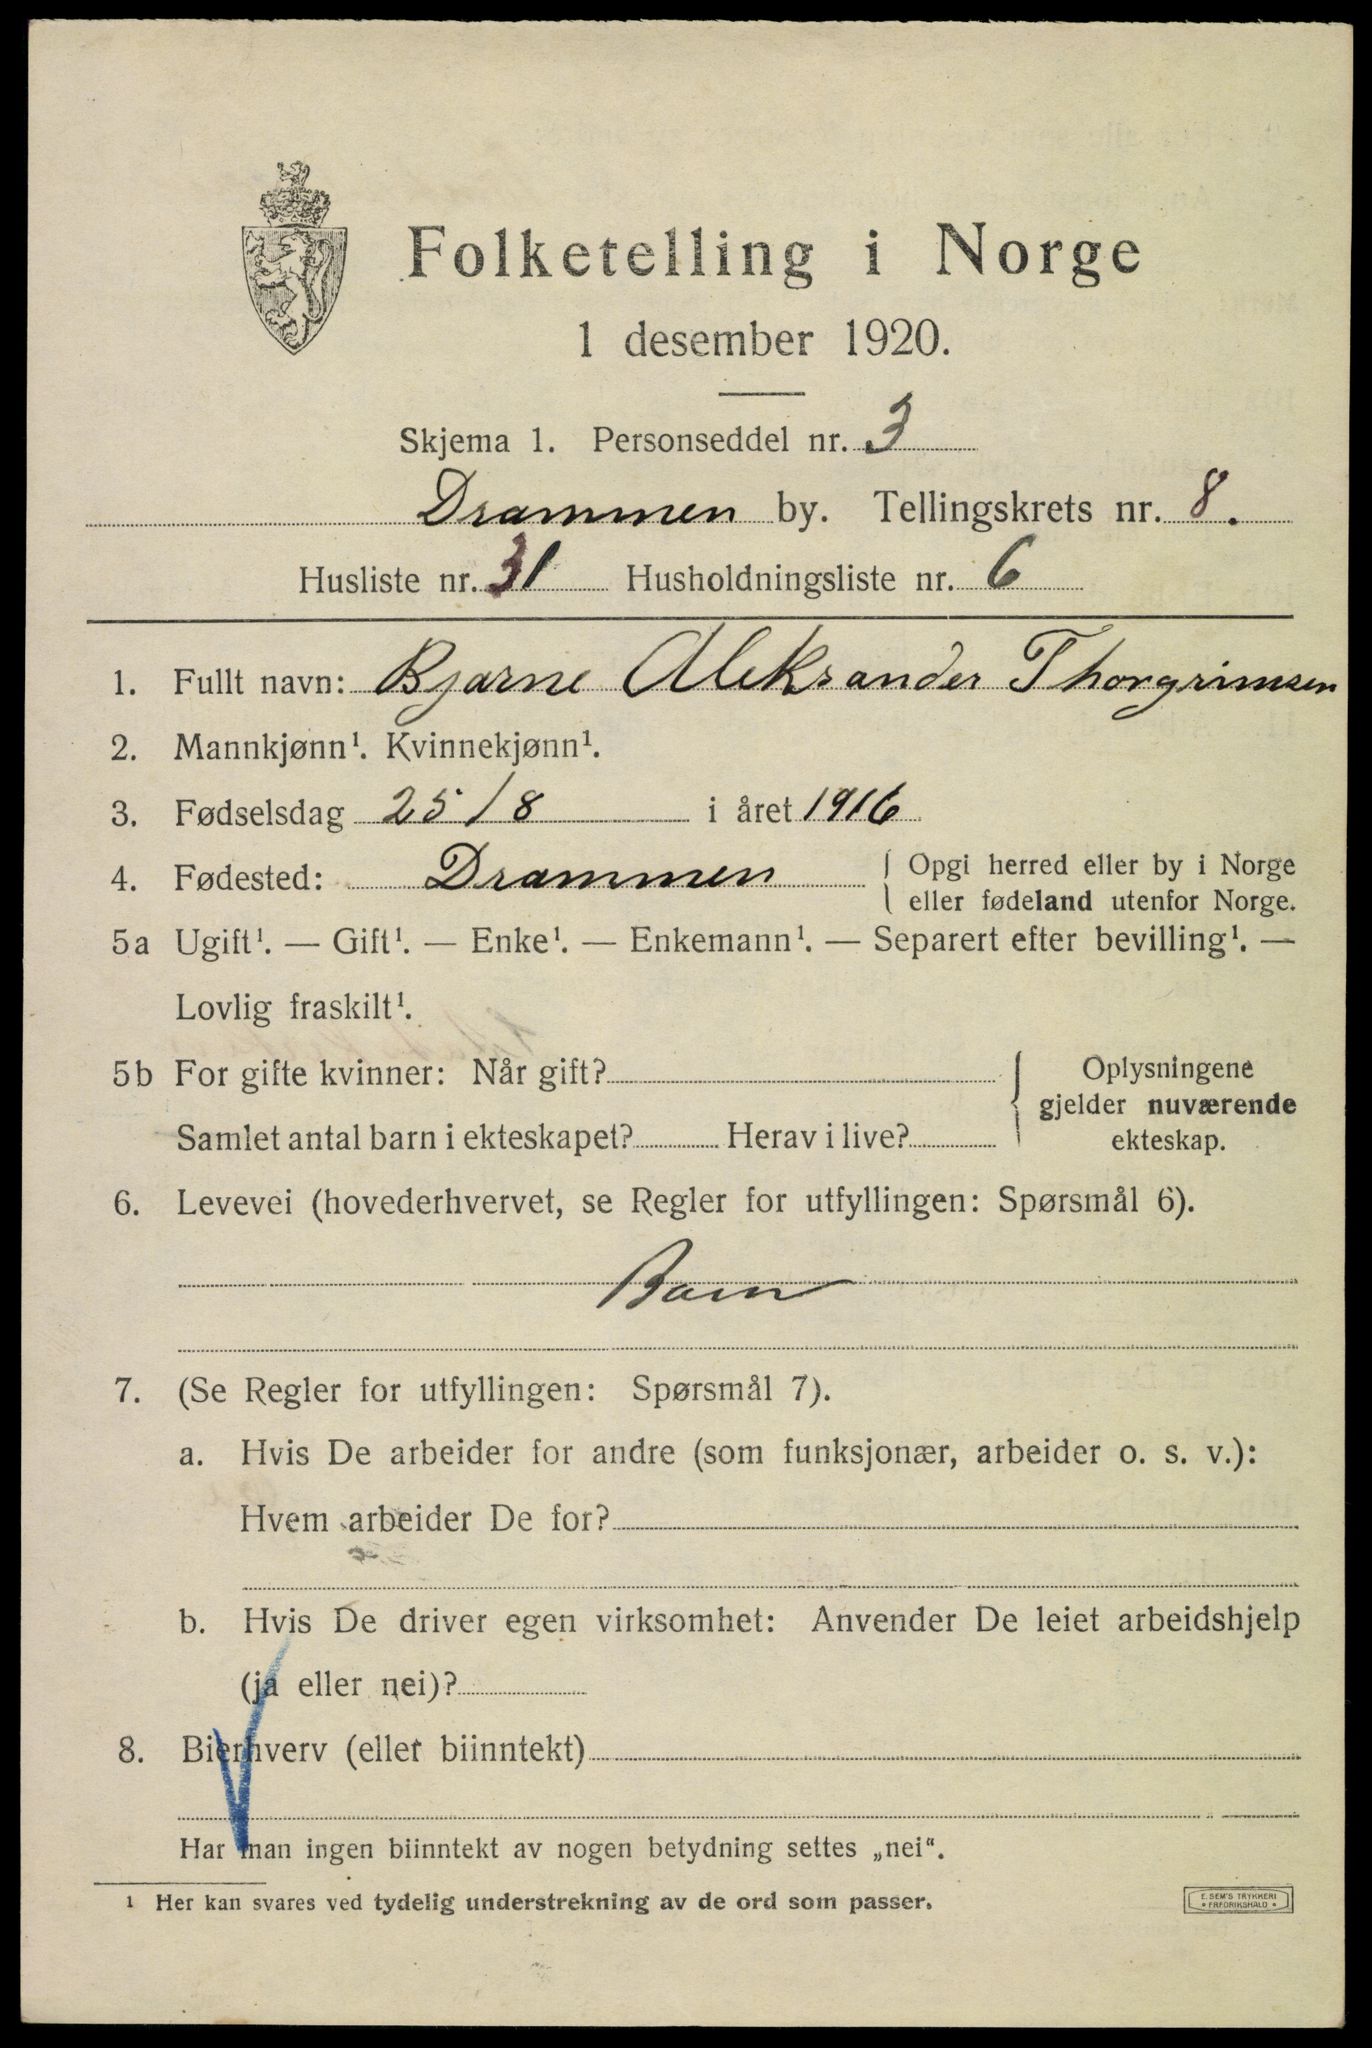 Folketelling i Norge
1 desember 1920.
Skjema 1. Personseddel nr. 3
Drammen by. Tellingskrets nr. 8.
Husliste nr. 31 Husholdningsliste nr. 6
1. Fullt navn: Bjarne Aleksander Thorgrimsen
2. Mannkjønn¹. Kvinnekjønn¹.
3. Fødselsdag 25/8 i året 1916
4. Fødested: Drammen { Opgi herred eller by i Norge
eller fødeland utenfor Norge.
5a Ugift¹. — Gift¹. — Enke¹. — Enkemann¹. — Separert efter bevilling¹. —
Lovlig fraskilt¹.
5b For gifte kvinner: Når gift? { Oplysningene
gjelder nuværende
Samlet antal barn i ekteskapet? Herav i live? ekteskap.
6. Levevei (hovederhvervet, se Regler for utfyllingen: Spørsmål 6).
Barn
7. (Se Regler for utfyllingen: Spørsmål 7).
a. Hvis De arbeider for andre (som funksjonær, arbeider o. s. v.):
Hvem arbeider De for?
b. Hvis De driver egen virksomhet: Anvender De leiet arbeidshjelp
(ja eller nei)?
8. Bierhverv (eller biinntekt)
Har man ingen biinntekt av nogen betydning settes „nei“.
¹ Her kan svares ved tydelig understrekning av de ord som passer.
E. SEM'S TRYKKERI
• FREDRIKSHALD •